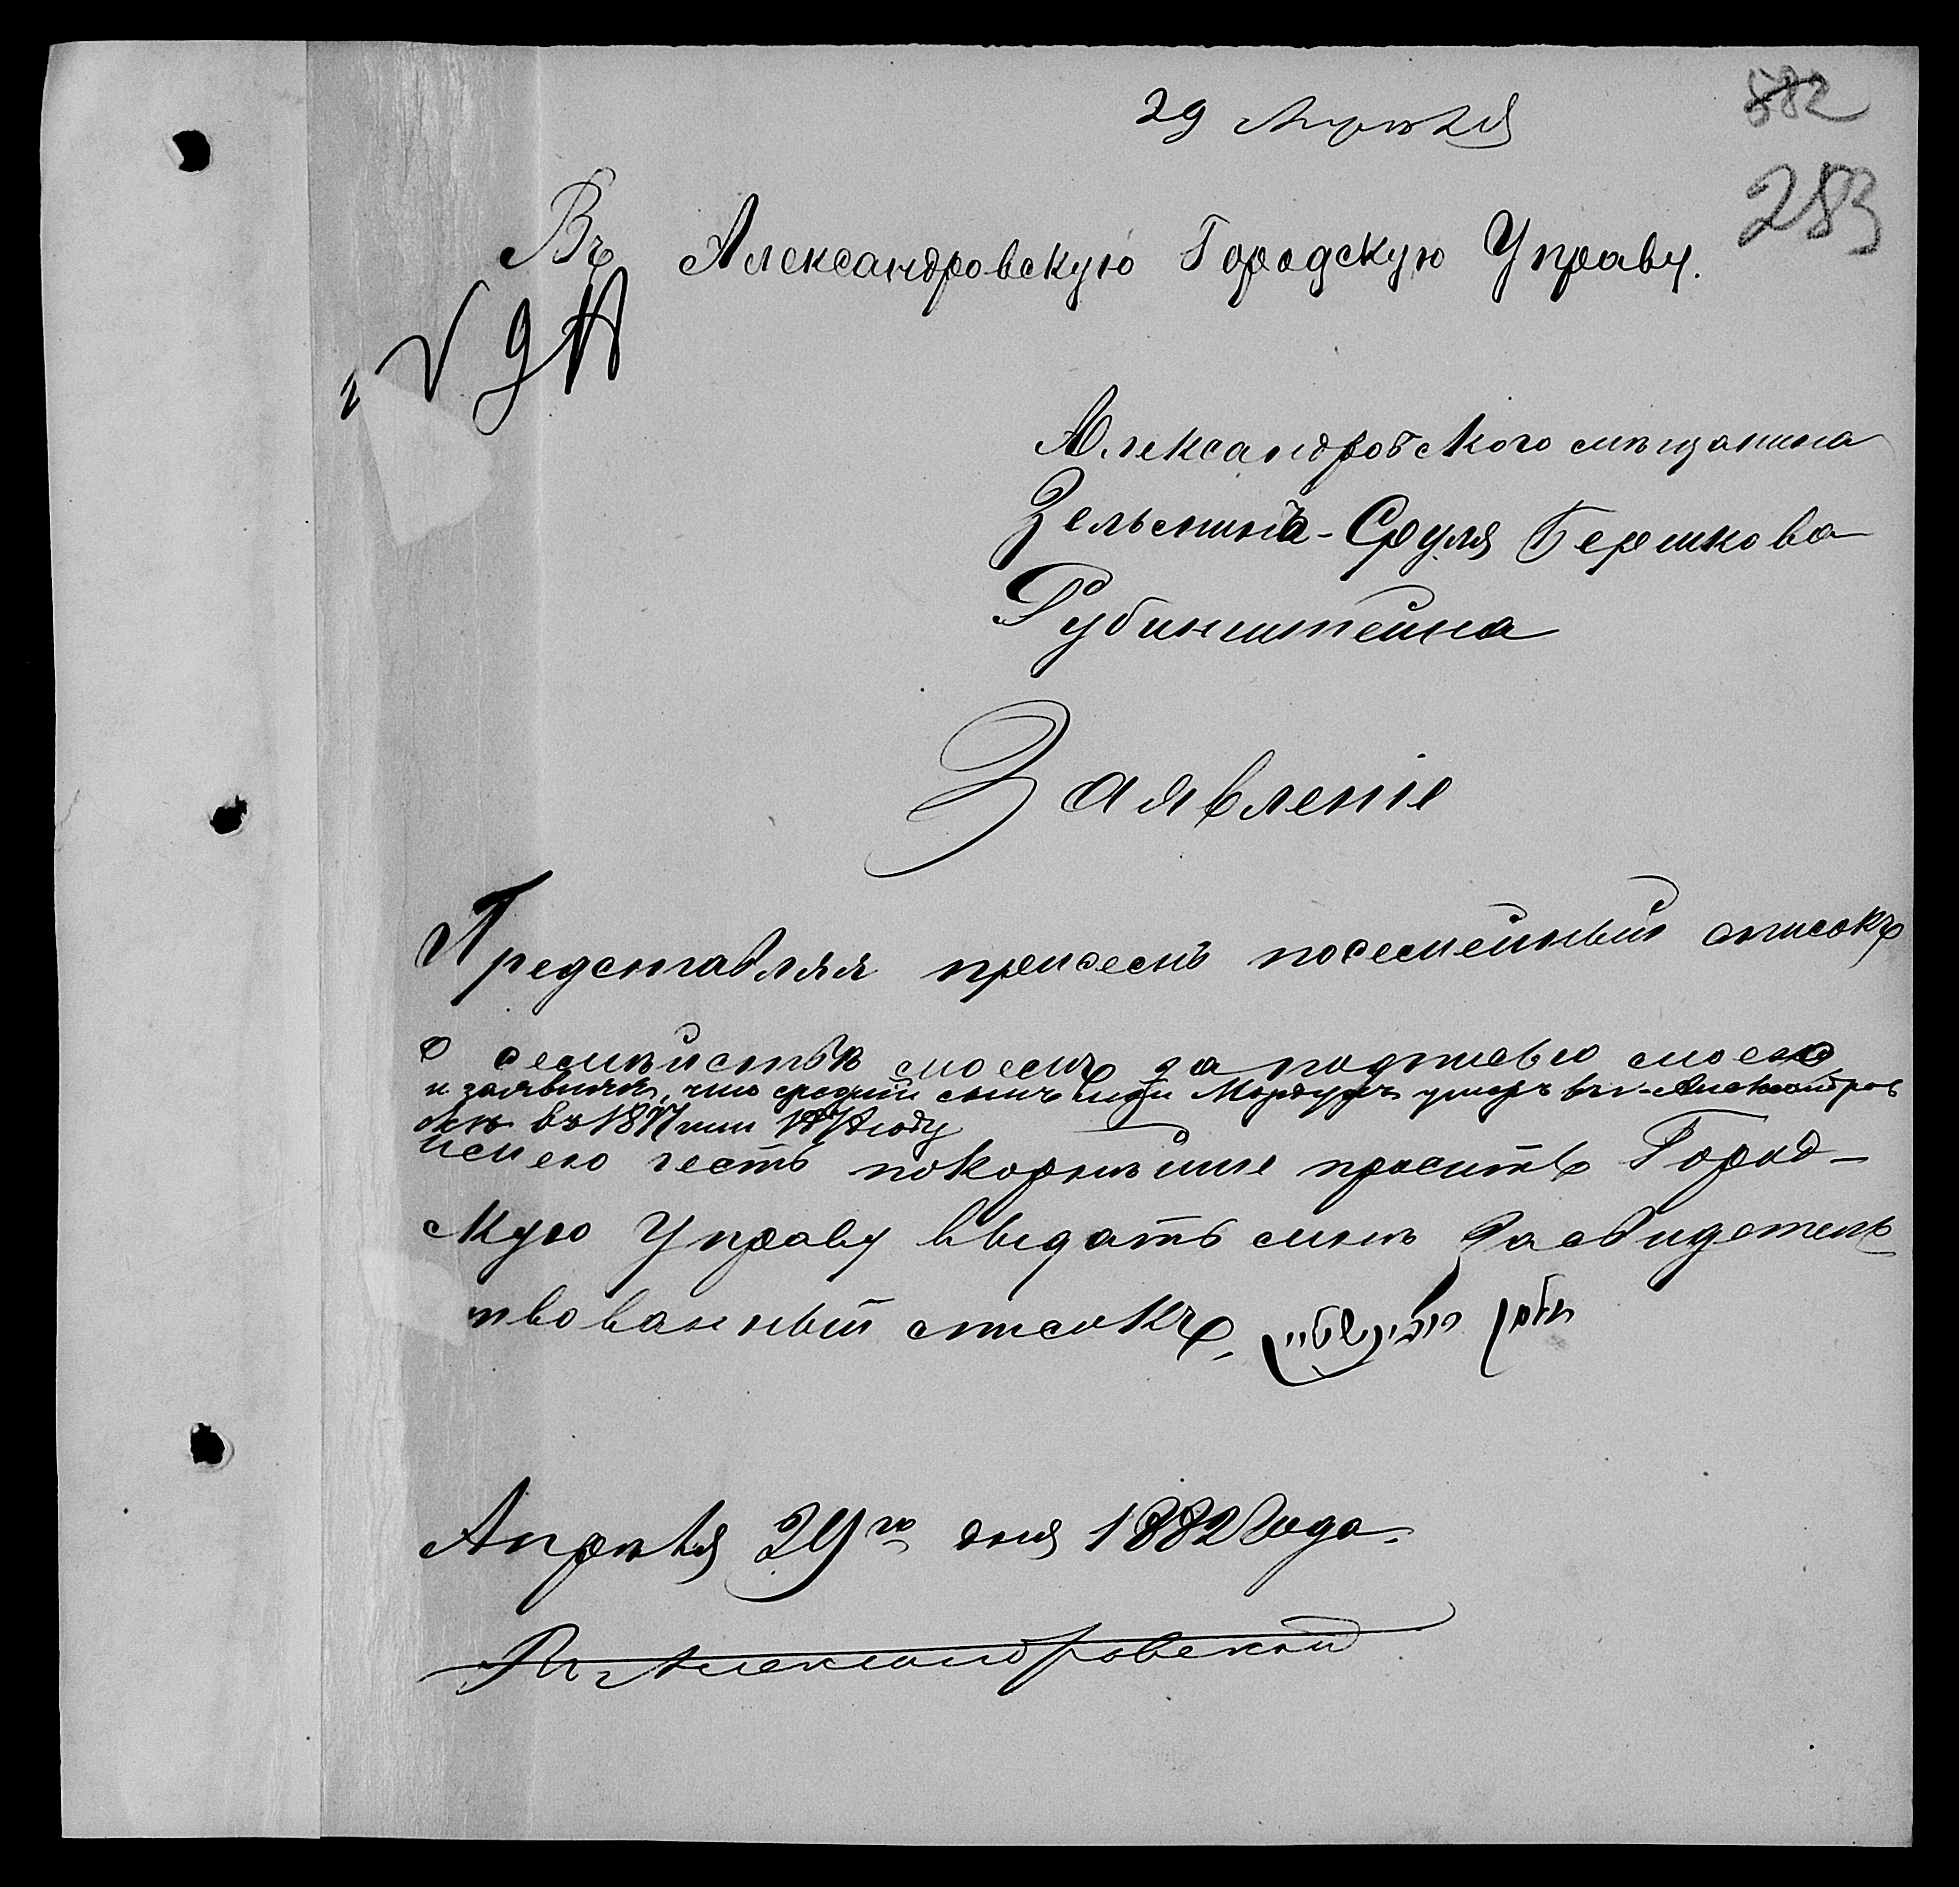 582
29 Апрѣля
283
Въ Александровскую Городскую Управу.
Александровского мѣщанина
Зельмина-Сруля Бершкова
Рубинштейна
Заявленіе
Представляя при семъ посемейный списокъ
о семѣйствѣ моемъ за подписью моею
и заявляя, что средній сынъ мой Мордухъ умеръ въ г. Александров
скѣ въ 1877 или году
имею честь покорнѣише просить Город-
скую Управу выдать мнѣ засвидетель
ствованный списокъ.
זלמן רובינשטיין
Апрѣля 29го дня 1882 года.
Гг. Александровский